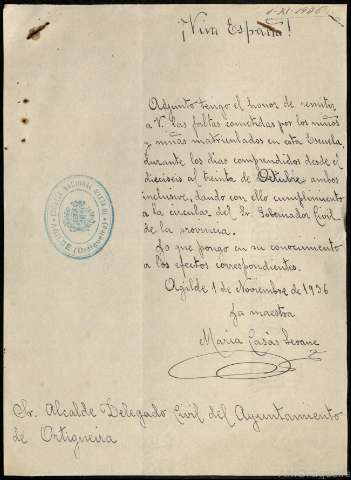 1-XI-1936
¡Viva España!
Adjunto tengo el honor de remitir
a V. las faltas cometidas por los niños
y niñas matriculados en esta Escuela,
durante los días comprendidos desde el
dieciseis al treinta de Octubre ambos
inclusive, dando con ello cumplimiento
a la circular del Sr. Gobernador Civil
de la provincia.
Lo que pongo en su conocimiento
a los efectos correspondientes.
Agilde 1 de Noviembre de 1936
La maestra
María Casás Seoane
Sr. Alcalde Delegado Civil del Ayuntamiento
de Ortigueira
ESCUELA NACIONAL MIXTA DE
AGILDE (Ortigueira)